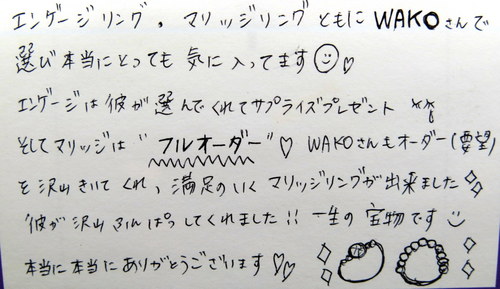 エンゲージリング、マリッジリングともにWAKOさんで
選び本当にとっても気に入ってます♡
エンゲージは彼が選んでくれてサプライズプレゼント
そしてマリッジは"フルオーダー"♡ WAKOさんもオーダー(要望)
を沢山きいてくれ、満足のいくマリッジリングが出来ました
彼が沢山ふんぱつしてくれました!! 一生の宝物です
本当に本当にありがとうございます♡♡